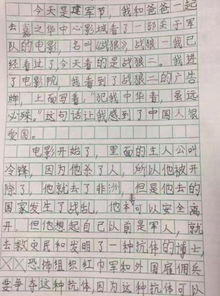 今天是建军节，我和爸爸一起
去影之华中心影城看了一部关于军
队的电影，名叫《战狼二》战狼一我已
经看过了今天看的是战狼二。我进
了电影院，我看到了战狼二的广告
牌，上面写着："犯我中华者，虽远
必殊。"这句话让我感到了中国人很
爱国。
电影开始了，里面的主人公叫
冷锋，因为他杀了人，所以他被开
除了，他就去了非洲，但是他去的
国家发生了战乱，他本可以安全离
开，但他想起自己以前是军人，就
去救灾民和发明了一种抗体的博士，
××恐怖组织红巾军和外国雇佣兵
要争夺这种抗体，因为这种抗体可以